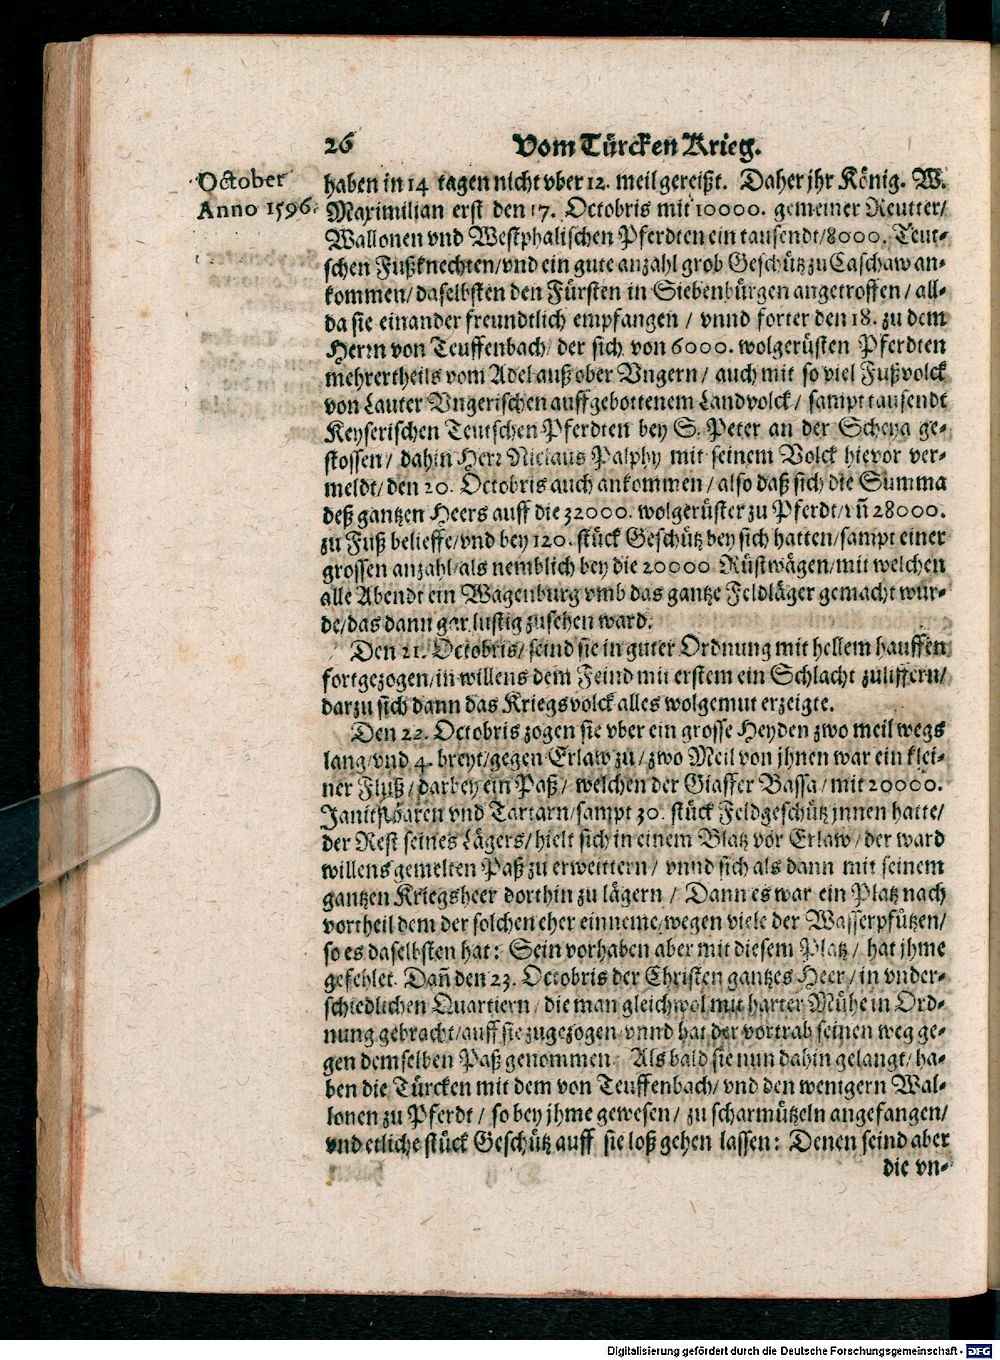 26 Vom Türcken Krieg.
October
Anno 1596.
haben in 14 tagen nicht vber 12. meil gereißt. Daher jhr König. W.
Maximilian erst den 17. Octobris mit 10000. gemeiner Reutter/
Wallonen vnd Westphalischen Pferdten ein tausendt/8000. Teut-
schen Fußknechten/vnd ein gute anzahl grob Geschütz zu Caschaw an-
kommen/daselbsten den Fürsten in Siebenbürgen angetroffen/all-
da sie einander freundtlich empfangen/vnnd forter den 18. zu dem
Herrn von Teuffenbach/der sich von 6000. wolgerüsten Pferdten
mehrertheils vom Adel auß ober Vngern/auch mit so viel Fußvolck
von Lauter Vngerischen auffgebottenem Landvolck/sampt tausendt
Keyserischen Teutschen Pferdten bey S. Peter an der Scheya ge-
stossen/dahin Herr Niclaus Palphy mit seinem Volck hievor ver-
meldt/den 20. Octobris auch ankommen/also daß sich die Summa
deß gantzen Heers auff die 32000. wolgerüster zu Pferdt/vñ 28000.
zu Fuß belieffe/vnd bey 120. stück Geschütz bey sich hatten/sampt einer
grossen anzahl/als nemblich bey die 20000 Rüstwägen/mit welchen
alle Abendt ein Wagenburg vmb das gantze Feldläger gemacht wur-
de/das dann gar lustig zusehen ward.
Den 21. Octobris/seind sie in guter Ordnung mit hellem hauffen
fortgezogen/in willens dem Feind mit erstem ein Schlacht zuliffern/
darzu sich dann das Kriegsvolck alles wolgemut erzeigte.
Den 22. Octobris zogen sie vber ein grosse Heyden zwo meil wegs
lang/vnd 4. breyt/gegen Erlaw zu/zwo Meil von jhnen war ein klei-
ner Fluß/darbey ein Paß/welchen der Giaffer Bassa/mit 20000.
Janitscharen vnd Tartarn/sampt 30. stück Feldgeschütz jnnen hatte/
der Rest seines Lägers/hielt sich in einem Blatz vor Erlaw/der ward
willens gemelten Paß zu erweittern/vnnd sich als dann mit seinem
gantzen Kriegsheer dorthin zu lägern/Dann es war ein Platz nach
vortheil dem der solchen eher einneme/wegen viele der Wasserpfützen/
so es daselbsten hat: Sein vorhaben aber mit diesem Platz/hat jhme
gefehlet. Dañ den 23. Octobris der Christen gantzes Heer/in vnder-
schiedlichen Quartiern/die man gleichwol mit harter Mühe in Ord-
nung gebracht/auff sie zugezogen/vnnd hat der vortrab seinen weg ge-
gen demselben Paß genommen. Als bald sie nun dahin gelangt/ha-
ben die Türcken mit dem von Teuffenbach/vnd den wenigern Wal-
lonen zu Pferdt/so bey jhme gewesen/zu scharmützeln angefangen/
vnd etliche stück Geschütz auff sie loß gehen lassen: Denen seind aber
die vn-
Digitalisierung gefördert durch die Deutsche Forschungsgemeinschaft - DFG